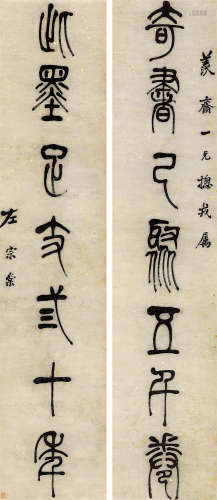 奇書已聚五千卷
齋一兄摠戎屬
此墨足支弎十年
左宗棠